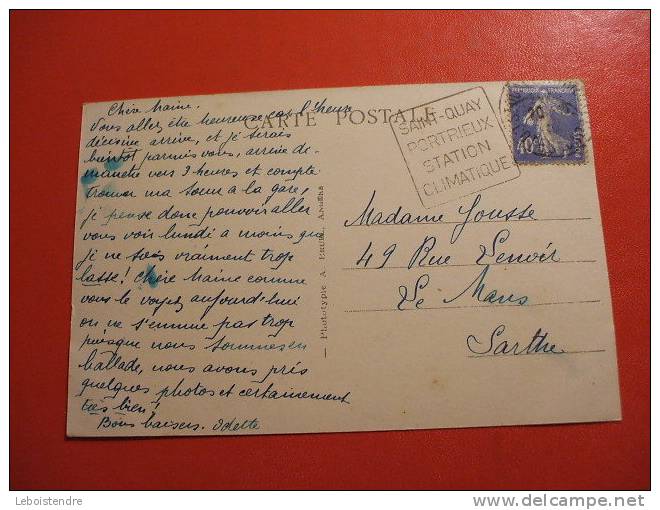 CARTE POSTALE
Chère Maine.
Vous allez être heureuse car l'heure
décisive arrive, et je serais
bientot parmis vous, arrive di-
manche vers 3 heures et compte
trouver ma sœur à la gare,
je pense donc pouvoir aller
vous voir lundi à moins que
je ne sois vraiment trop
lasse! Chère Maine comme
vous le voyez aujourd'hui
on ne s'ennuie pas trop
puisque nous sommes en
ballade, nous avons pris
quelques photos et certainement
très bien!
Bons baisers. Odette
— Phototypie A. BRUEL, Angers
SAINT-QUAY
PORTRIEUX
STATION
CLIMATIQUE
REPUBLIQUE FRANÇAISE
40c
POSTES
Madame Jousse
49 Rue Lenoir
Le Mans
Sarthe
Leboistendre
delcampe.net